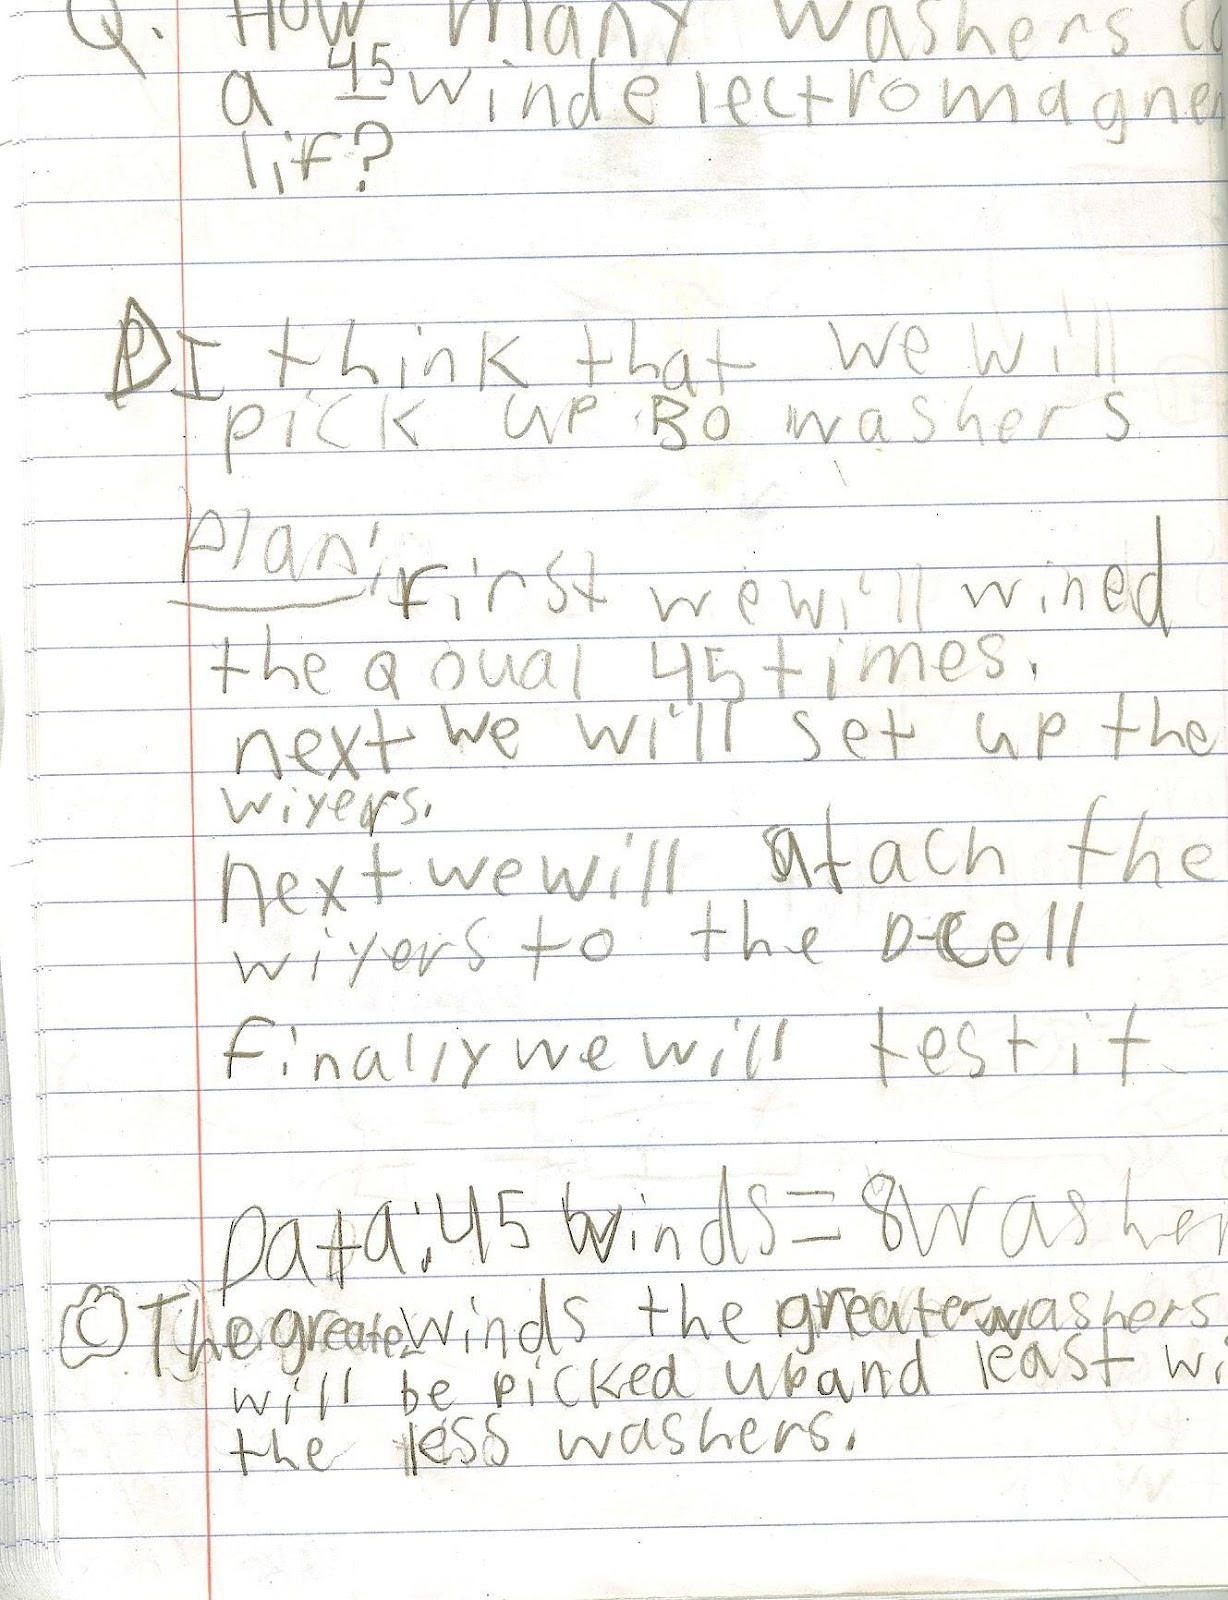 Q. How many washers
a 45 wind electromagne
lif?
P I think that we will
pick up 30 washers
Plan: First we will wined
the qoual 45 times.
next we will set up the
wiyers.
next we will atach the
wiyers to the D-cell
Finally we will test it
Data: 45 winds = 8 washer
C The greater winds the greater washers
will be picked up and least wi
the less washers.